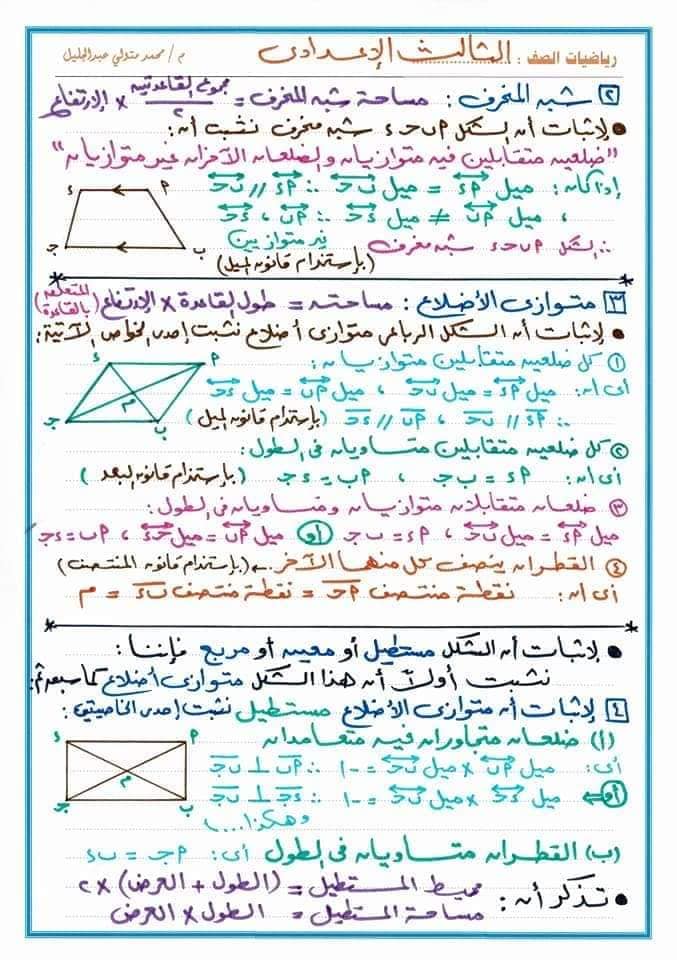 رياضيات الصف : الثالث الإعدادى م / محمد متولي عبدالجليل
[٢] شبه المنحرف : مساحة شبه المنحرف = مجموع القاعدتين / ٢ × الإرتفاع
● لإثبات أن الشكل ٢بحء شبه منحرف نثبت أن:
"ضلعين متقابلين فيه متوازيان والضلعان الآخران غير متوازيان"
إذا كان: ميل ءأ = ميل بح ∴ ءأ // بح
، ميل أب ≠ ميل ءح ∴ أب ، ءح
غير متوازيين
∴ الشكل أبحء شبه منحرف
(بإستخدام قانون الميل)
ء أ
جـ ب
[٣] متوازى الأضلاع : مساحته = طول القاعدة × الإرتفاع (المتعلق بالقاعدة)
● لإثبات أن الشكل الرباعى متوازى أضلاع نثبت إحدى الخواص الآتية:
① كل ضلعين متقابلين متوازيان:
أى أن: ميل أء = ميل بح ، ميل أب = ميل ءح
∴ أء // بح ، أب // ءح (بإستخدام قانون الميل)
ء أ
م
جـ ب
② كل ضلعين متقابلين متساويان فى الطول:
أى أن: أء = ب جـ ، أب = ء جـ (بإستخدام قانون البعد)
③ ضلعان متقابلان متوازيان ومتساويان فى الطول:
ميل أء = ميل بح ، أء = ب جـ أو ميل أب = ميل ءح ، أب = ءجـ
④ القطران ينصف كل منهما الآخر ← (بإستخدام قانون المنتصف)
أى أن: نقطة منتصف أح = نقطة منتصف بء = م
● لإثبات أن الشكل مستطيل أو معين أو مربع فإننا:
نثبت أولاً أن هذا الشكل متوازى أضلاع كما سبق ثم:
[٤] لإثبات أن متوازى الأضلاع مستطيل نثبت إحدى الخاصيتين:
(أ) ضلعان متجاوران فيه متعامدان
أى: ميل أب × ميل بح = -١ ∴ أب ⊥ بح
أو ← ميل ءح × ميل بح = -١ ∴ ءجـ ⊥ بح
وهكذا...)
ء أ
م
جـ ب
(ب) القطران متساويان فى الطول أى: أجـ = بء
● تذكر أن: محيط المستطيل = (الطول + العرض) × ٢
مساحة المستطيل = الطول × العرض